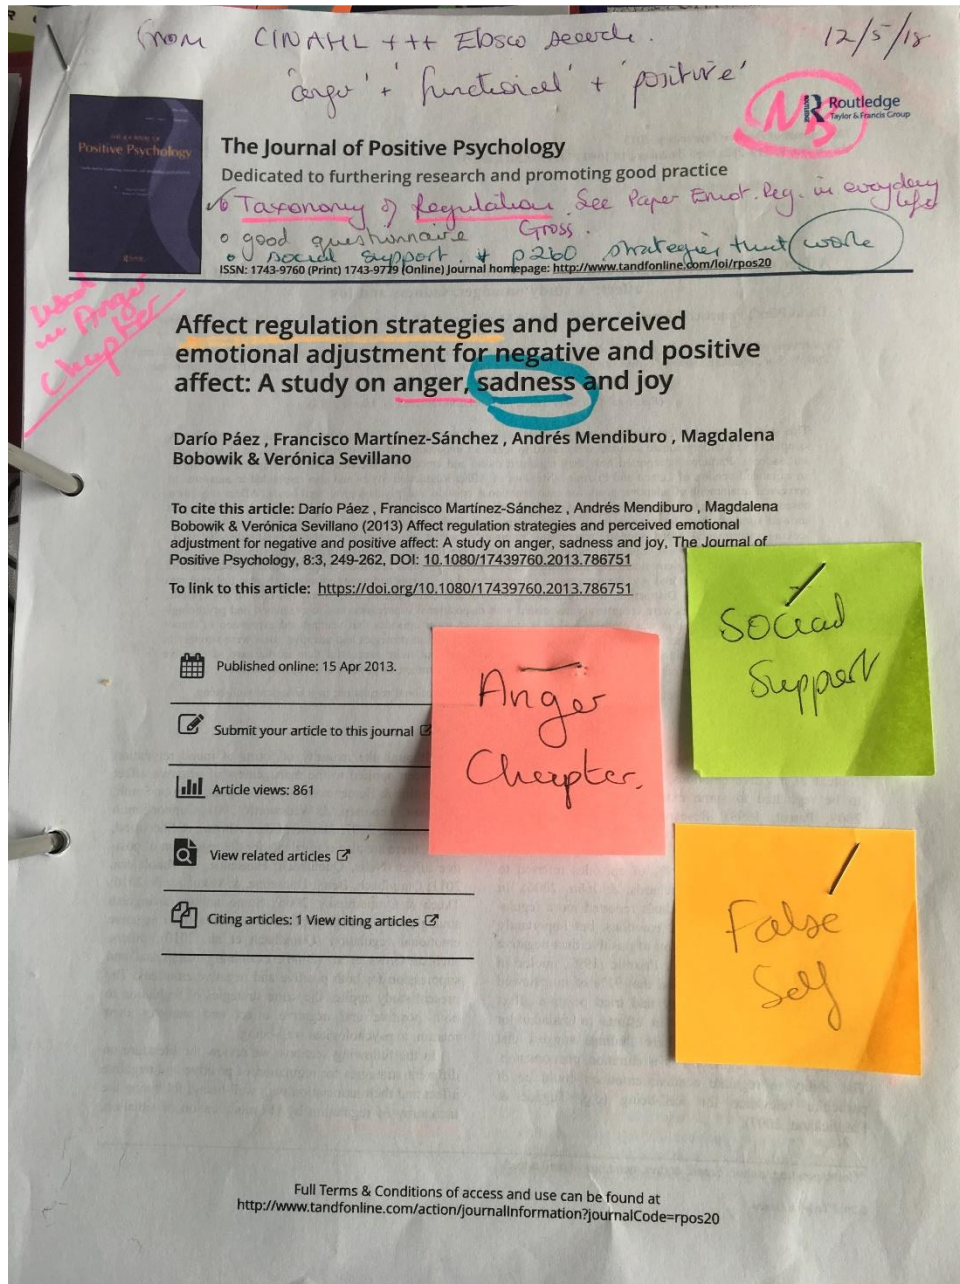 from CINAHL +++ Ebsco search.
12/5/18
'anger' + functional' + 'positive'
THE JOURNAL OF
Positive Psychology
NB
R Routledge
Taylor & Francis Group
The Journal of Positive Psychology
Dedicated to furthering research and promoting good practice
Taxonomy of Regulation. See Paper Emot. Reg. in everyday life
Gross.
o good questionnaire
o social support. * p260 strategies that work
ISSN: 1743-9760 (Print) 1743-9779 (Online) Journal homepage: http://www.tandfonline.com/loi/rpos20
Used
in Anger
Chapter
Affect regulation strategies and perceived
emotional adjustment for negative and positive
affect: A study on anger, sadness and joy
Darío Páez , Francisco Martínez-Sánchez , Andrés Mendiburo , Magdalena
Bobowik & Verónica Sevillano
To cite this article: Darío Páez , Francisco Martínez-Sánchez , Andrés Mendiburo , Magdalena
Bobowik & Verónica Sevillano (2013) Affect regulation strategies and perceived emotional
adjustment for negative and positive affect: A study on anger, sadness and joy, The Journal of
Positive Psychology, 8:3, 249-262, DOI: 10.1080/17439760.2013.786751
To link to this article: https://doi.org/10.1080/17439760.2013.786751
Social
Support
Anger
Chapter.
False
Self
Published online: 15 Apr 2013.
Submit your article to this journal
Article views: 861
View related articles
Citing articles: 1 View citing articles
Full Terms & Conditions of access and use can be found at
http://www.tandfonline.com/action/journalInformation?journalCode=rpos20